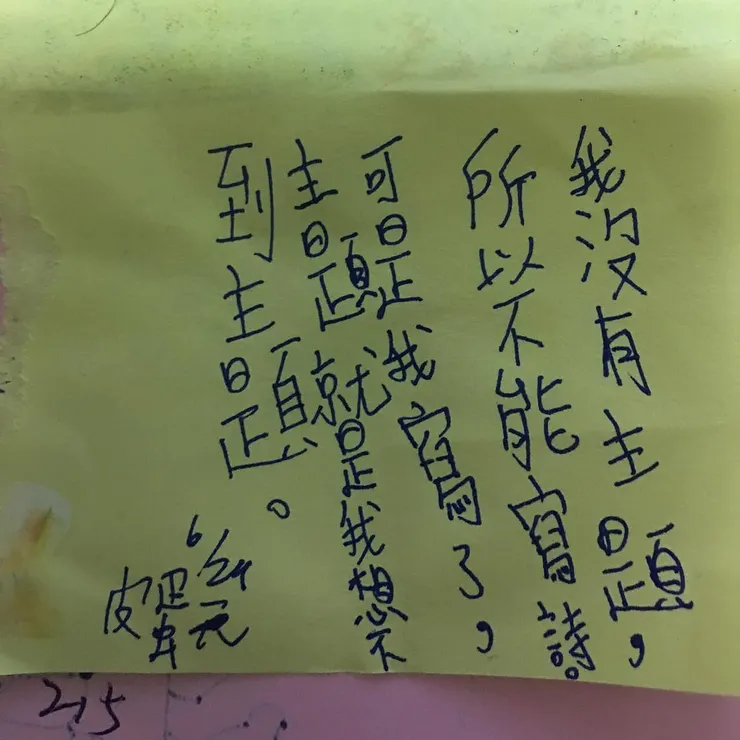 我沒有主題，
所以不能寫詩。
可是我寫了，
主題就是我想不
到主題。
6/24
皮
215